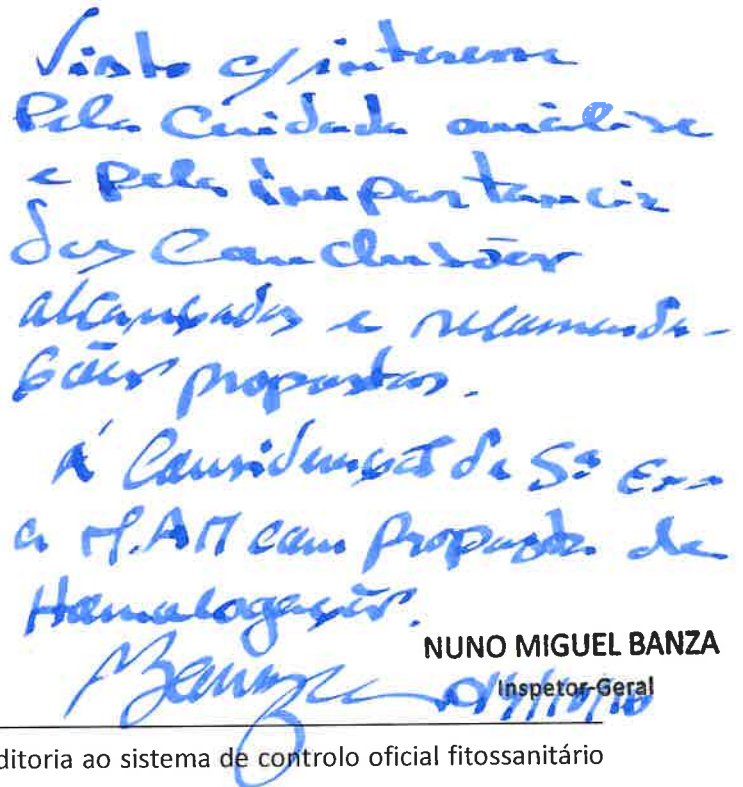 Visto c/ interesse
Pela Cuidada análise
e pela importancia
das Conclusões
alcançadas e recomenda-
ções propostas.
À Consideração de Sª Exª
a M.AM com Proposta de
Homologação.
Banza
NUNO MIGUEL BANZA
Inspetor-Geral
ditoria ao sistema de controlo oficial fitossanitário